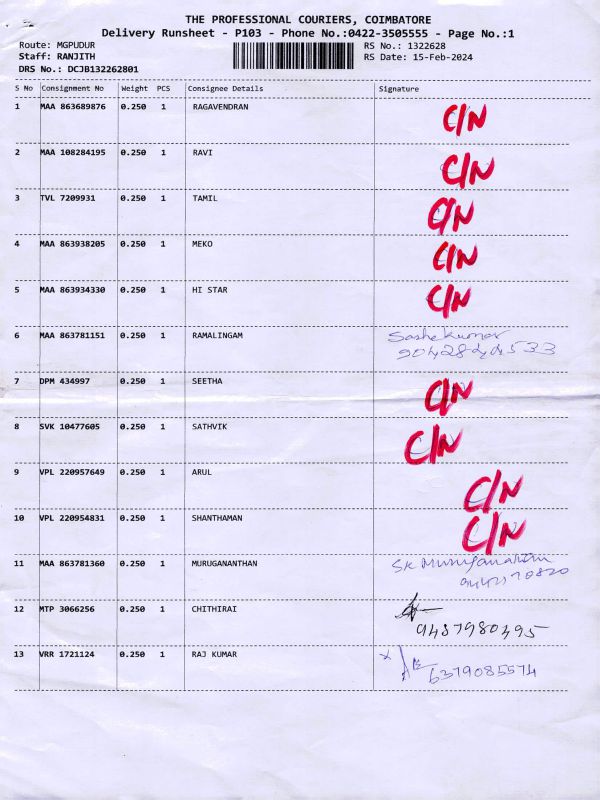 THE PROFESSIONAL COURIERS, COIMBATORE
Delivery Runsheet - P103 - Phone No.:0422-3505555 - Page No.:1
Route: MGPUDUR RS No.: 1322628
Staff: RANJITH RS Date: 15-Feb-2024
DRS No.: DCJB132262801
S No Consignment No Weight PCS Consignee Details Signature
1 MAA 863689876 0.250 1 RAGAVENDRAN C/N
2 MAA 108284195 0.250 1 RAVI C/N
3 TVL 7209931 0.250 1 TAMIL C/N
4 MAA 863938205 0.250 1 MEKO C/N
5 MAA 863934330 0.250 1 HI STAR C/N
6 MAA 863781151 0.250 1 RAMALINGAM Sashekumar
9042844533
7 DPM 434997 0.250 1 SEETHA C/N
8 SVK 10477605 0.250 1 SATHVIK C/N
9 VPL 220957649 0.250 1 ARUL C/N
10 VPL 220954831 0.250 1 SHANTHAMAN C/N
11 MAA 863781360 0.250 1 MURUGANANTHAN SK
12 MTP 3066256 0.250 1 CHITHIRAI
13 VRR 1721124 0.250 1 RAJ KUMAR x
6379085574